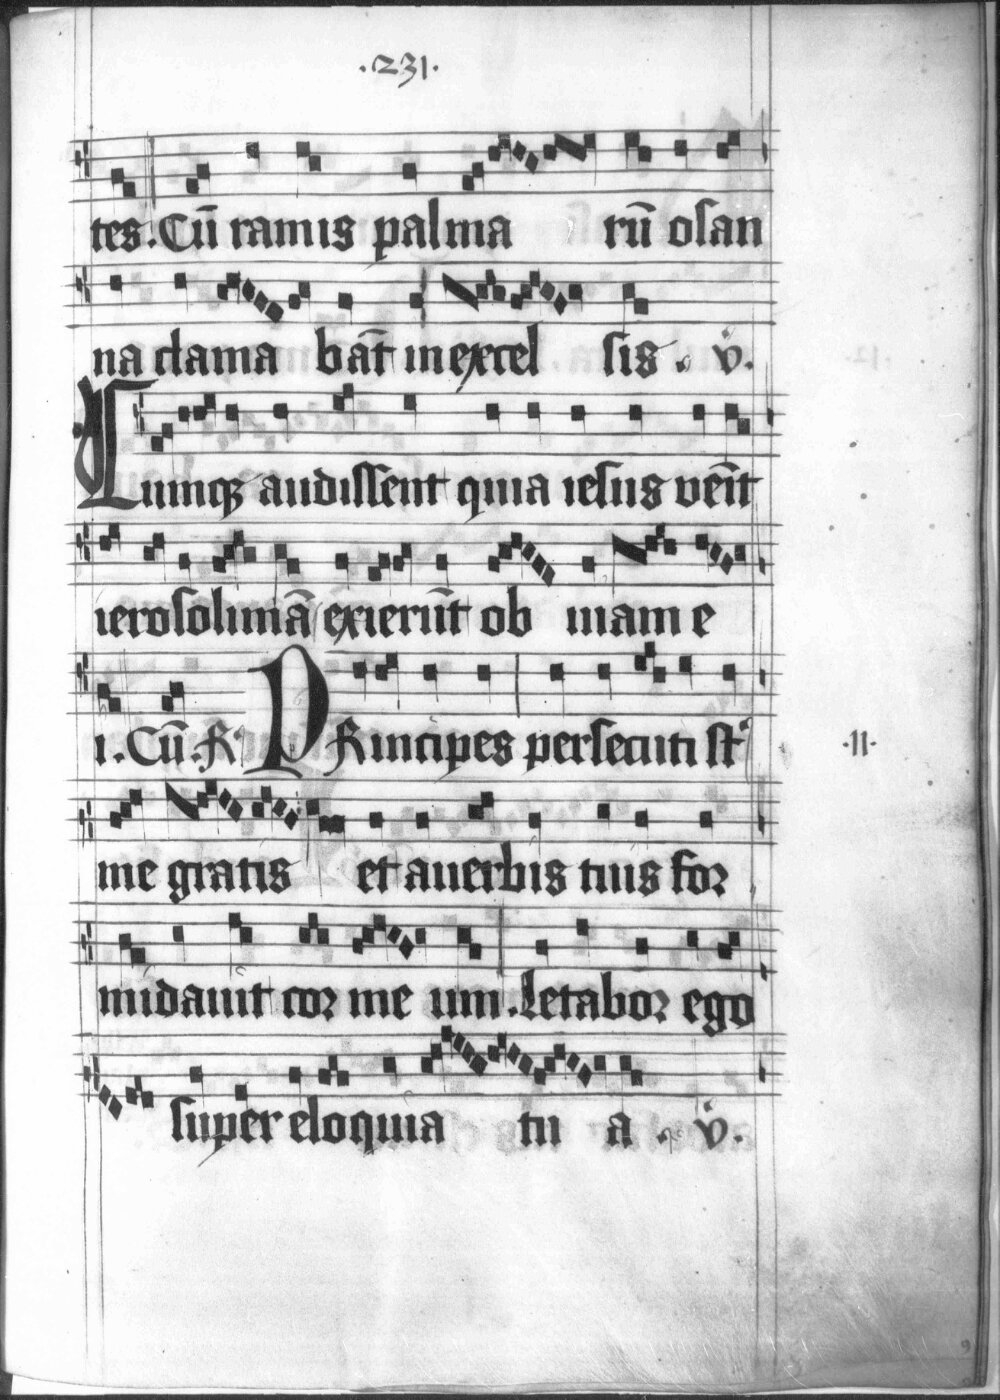 .231.
tes. Cū ramis palma rū osan
na clama bāt in excel sis . v̇.
Cumqꝫ audissent quia iesus venīt
ierosolimā exierūt ob uiam e
i. Cū. R̃ PRincipes persecuti st̄
.11.
me gratis et auerbis tuis for
midauit cor me um. Letabor ego
super eloquia tu a . v̇.